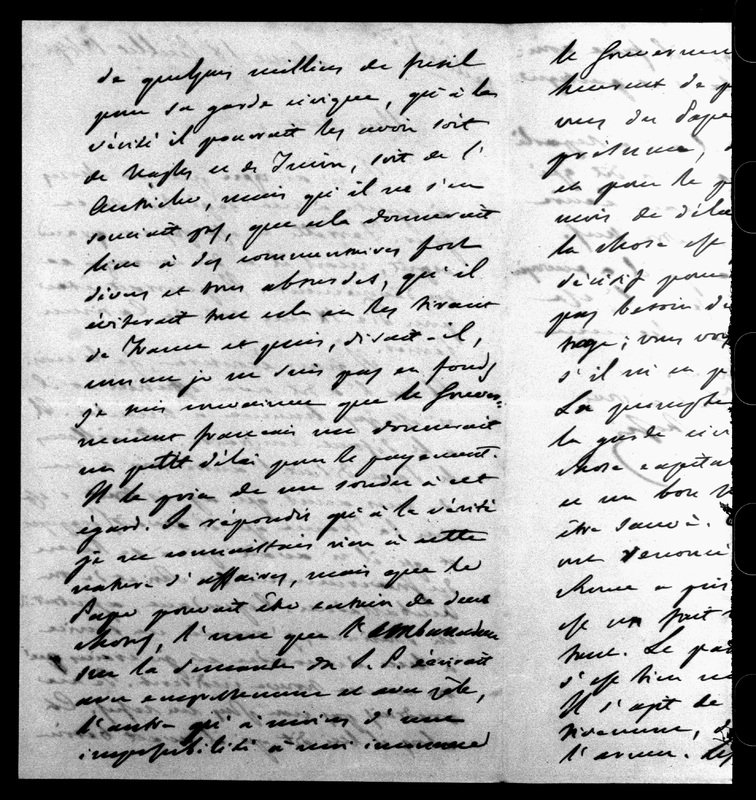 de quelques milliers de fusil
pour sa garde civique, qu'à la
vérité il pourrait les avoir soit
de Naples ou de Turin, soit de l'
Autriche, mais qu'il ne s'en
souciait pas, que cela donnerait
lieu à des commentaires fort
divers et tous absurdes, qu'il
éviterait tout cela en les tirant
de France et puis, disait-il,
comme je ne suis pas en fonds
je suis convaincu que le Gouver=
nement français me donnerait
un petit délai pour le payement.
Il le pria de me sonder à cet
égard. Je répondis qu'à la vérité
je ne connaissais rien à cette
nature d'affaires, mais que le
Pape pouvait être certain de deux
choses, l'une que l'ambassadeur
sur la demande du S. P. écrirait
avec empressement et avec zèle,
l'autre qu'à moins d'une
impossibilité à moi inconnue
le Gouvernem
vous du Pape
présence,
et pour le p
mois de déla
la chose est
décisif pour
pas besoin de
tage; vous voy
s'il m'en p
La promple
la garde civi
chose capital
et un bon
être sauvé.
ont renoncé
Rome a
est un fait
tout. Le pa
s'est bien
Il s'agit de
vivement,
l'armer.